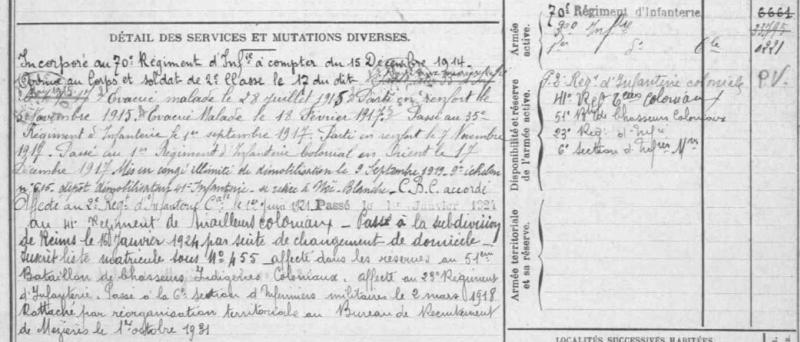 DÉTAIL DES SERVICES ET MUTATIONS DIVERSES.
Incorporé au 70e Régiment d'Infie à compter du 15 Décembre 1914.
Arrivé au Corps et soldat de 2e Classe le 17 du dit
Evacué malade le 28 Juillet 1915. Parti en renfort le
Novembre 1915. Evacué Malade le 18 Février 1917. Passé au 35e
Régiment d'Infanterie le 1er septembre 1917. Parti en renfort le 7 Novembre
1917. Passé au 1er Régiment d'Infanterie Colonial en Orient le 17
Décembre 1917 Mis en congé illimité de démobilisation le 3 Septembre 1919. 9e échelon
n° 615. dépôt démobilisateur 41e Infanterie. se retire à C.B.C. accordé
Affecté au 2e Régt d'Infanterie Cale le 1er Juin 1921. Passé le 1er Janvier 1924
au 41e Régiment de mitrailleurs coloniaux - Passé à la subdivision
de Reims le 18 Janvier 1924 par suite de changement de domicile -
Inscrit liste matricule sous N° 455 affecté dans les réserves au 51eme
Bataillon de Chasseurs Indigènes Coloniaux, affecté au 23e Régiment
d'Infanterie. Passé à la 6e section d'Infirmiers militaires le 2 mars 1918
Rattaché par réorganisation territoriale au Bureau de Recrutement
de Mézières le 1er octobre 1931
Armée active.
70e Régiment d'Infanterie 6661
Infie
1er do Cle 1221
Disponibilité et réserve de l'armée active.
2e Régt d'Infanterie coloniale P.V.
41e Régt Coloniaux
51e Bat. de Chasseurs Coloniaux
23e Reg. d'Infie
6e section d'Infres Mres
Armée territoriale et sa réserve.
LOCALITÉS SUCCESSIVES HABITÉES